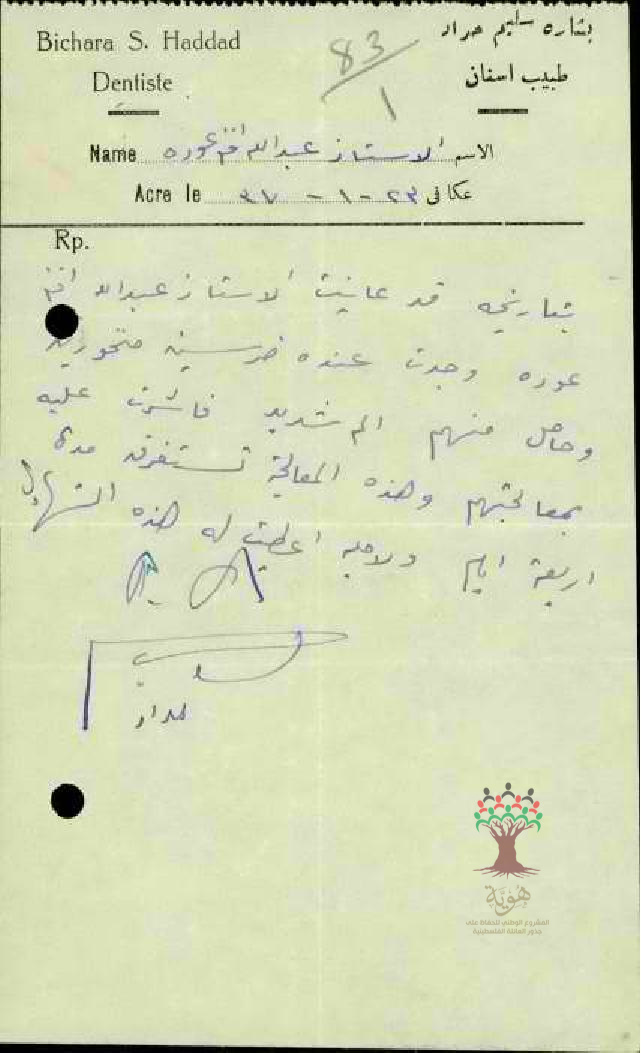 Bichara S. Haddad
بشاره سليم حداد
Dentiste
طبيب اسنان
83/1
Name الاستاذ عبدالله افندي عوره الاسم
Acre le ٢٣-١-٣٧ عكا في
Rp.
بتاريخه قد عاينت الاستاذ عبدالله افندي
عوره وجدت عنده ضرسين منخورين
وحاصل منهم الم شديد فاشرت عليه
بمعالجتهم وهذه المعالجة تستغرق مدة
اربعة ايام ولاجله اعطيت له هذه الشهادة
حداد
هُوِيَّة
المشروع الوطني للحفاظ على
جذور العائلة الفلسطينية